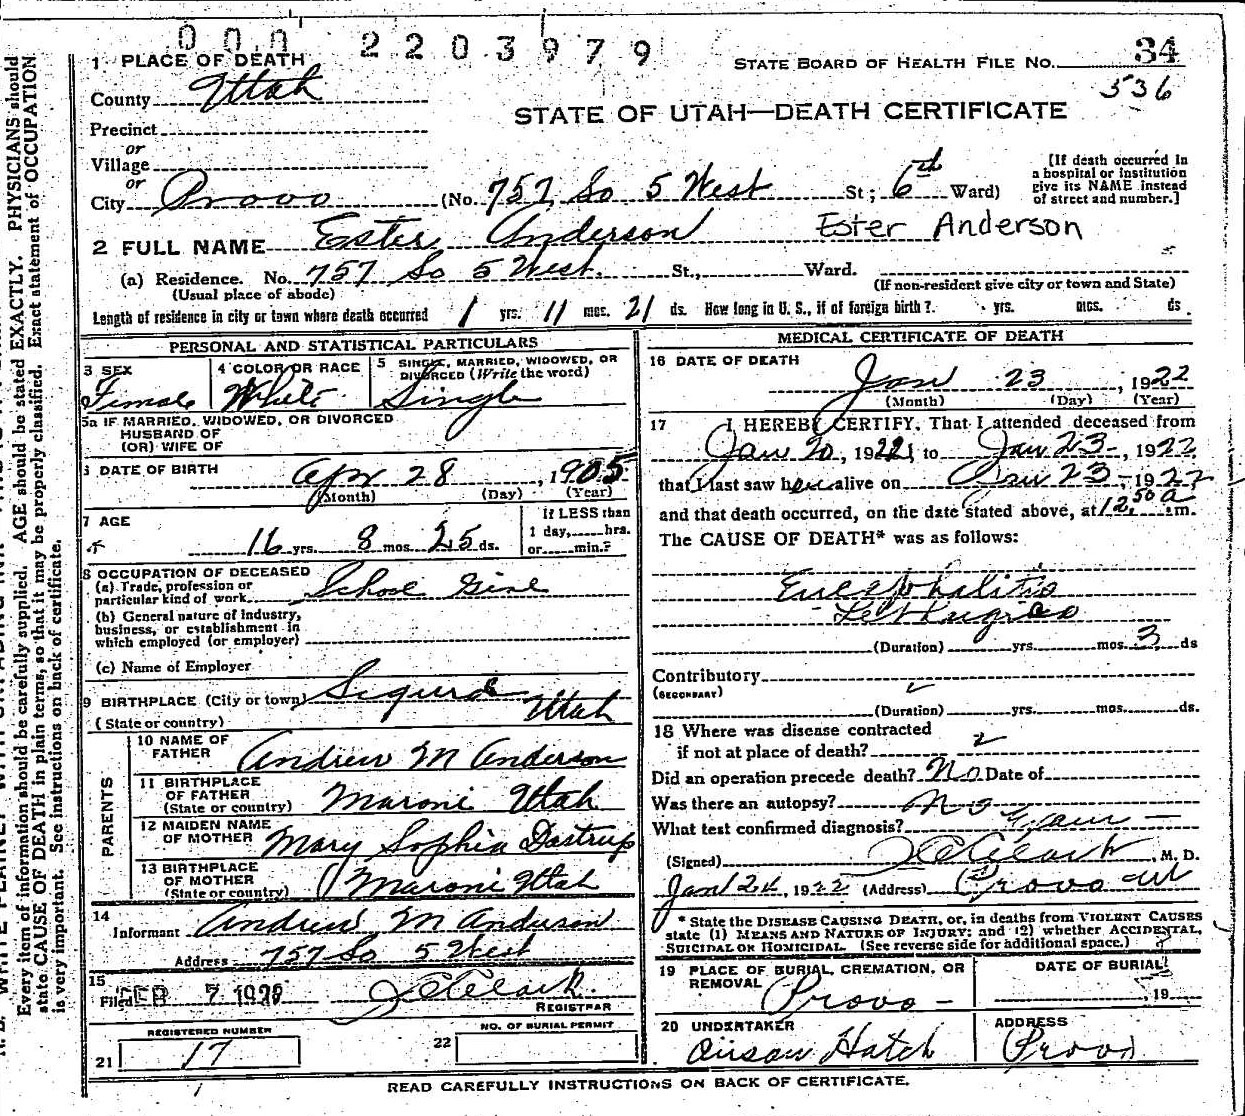 000 2203979
STATE BOARD OF HEALTH FILE NO. 34
536
1 PLACE OF DEATH
County Utah
STATE OF UTAH—DEATH CERTIFICATE
Precinct
or
Village
or
City Provo (No. 757 So 5 West St; 6th Ward)
[If death occurred in
a hospital or institution
give its NAME instead
of street and number.]
2 FULL NAME Ester Anderson Ester Anderson
(a) Residence. No. 757 So 5 West. St., Ward.
(Usual place of abode) (If non-resident give city or town and State)
Length of residence in city or town where death occurred 1 yrs. 11 mos. 21 ds. How long in U. S., if of foreign birth? yrs. mos. ds.
PERSONAL AND STATISTICAL PARTICULARS
3 SEX
Female
4 COLOR OR RACE
White
5 SINGLE, MARRIED, WIDOWED, OR
DIVORCED (Write the word)
Single
5a IF MARRIED, WIDOWED, OR DIVORCED
HUSBAND OF
(OR) WIFE OF
6 DATE OF BIRTH Apr 28, 1905
(Month) (Day) (Year)
7 AGE
16 yrs. 8 mos. 25 ds.
If LESS than
1 day,____hrs.
or____min.?
8 OCCUPATION OF DECEASED
(a) Trade, profession or
particular kind of work School Girl
(b) General nature of industry,
business, or establishment in
which employed (or employer)
(c) Name of Employer
9 BIRTHPLACE (City or town) Sigurd
(State or country) Utah
PARENTS
10 NAME OF
FATHER Andrew M Anderson
11 BIRTHPLACE
OF FATHER
(State or country) Maroni Utah
12 MAIDEN NAME
OF MOTHER Mary Sophia Dastrup
13 BIRTHPLACE
OF MOTHER
(State or country) Maroni Utah
14
Informant Andrew M Anderson
Address 757 So 5 West
15
Filed FEB 7 1922
REGISTRAR
REGISTERED NUMBER
21 17
NO. OF BURIAL PERMIT
22
MEDICAL CERTIFICATE OF DEATH
16 DATE OF DEATH
Jan 23, 1922
(Month) (Day) (Year)
17 I HEREBY CERTIFY, That I attended deceased from
Jan 20, 1922, to Jan 23-, 1922
that I last saw her alive on Jan 23-, 1922
and that death occurred, on the date stated above, at 12 50 a.m.
The CAUSE OF DEATH* was as follows:
Encephalitis
Lethargica
(Duration) yrs. mos. 3 ds
Contributory
(SECONDARY)
(Duration) yrs. mos. ds.
18 Where was disease contracted
if not at place of death?
Did an operation precede death? No Date of
Was there an autopsy? No
What test confirmed diagnosis? Exam —
(Signed) Clark, M. D.
Jan 24, 1922 (Address) Provo Ut
* State the DISEASE CAUSING DEATH, or, in deaths from VIOLENT CAUSES
state (1) MEANS AND NATURE OF INJURY; and (2) whether ACCIDENTAL,
SUICIDAL OR HOMICIDAL. (See reverse side for additional space.)
19 PLACE OF BURIAL, CREMATION, OR
REMOVAL Provo —
DATE OF BURIAL
, 19
20 UNDERTAKER
Hatch
ADDRESS
Provo
READ CAREFULLY INSTRUCTIONS ON BACK OF CERTIFICATE.
Every item of information should be carefully supplied. AGE should be stated EXACTLY. PHYSICIANS should
state CAUSE OF DEATH in plain terms, so that it may be properly classified. Exact statement of OCCUPATION
is very important. See instructions on back of certificate.